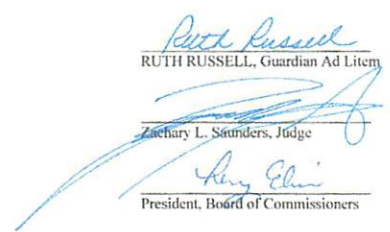 Ruth Russell
RUTH RUSSELL, Guardian Ad Litem
Zachary L. Saunders, Judge
President, Board of Commissioners